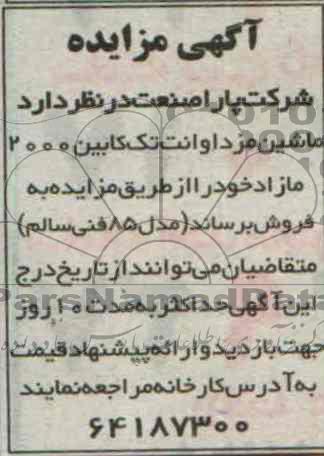 آگهی مزایده
شرکت پارا صنعت در نظر دارد
ماشین مزدا وانت تک کابین ۲۰۰۰
مازاد خود را از طریق مزایده به
فروش برساند (مدل ۸۵ فنی سالم)
متقاضیان می توانند از تاریخ درج
این آگهی حداکثر به مدت ۱۰ روز
جهت بازدید و ارائه پیشنهاد قیمت
به آدرس کارخانه مراجعه نمایند
۶۴۱۸۷۳۰۰